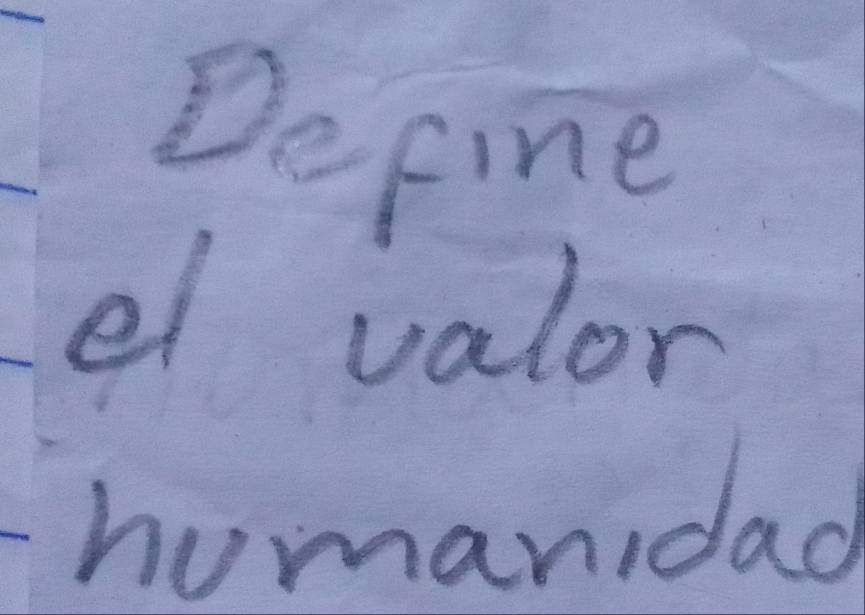 Define
el valor
humanidad